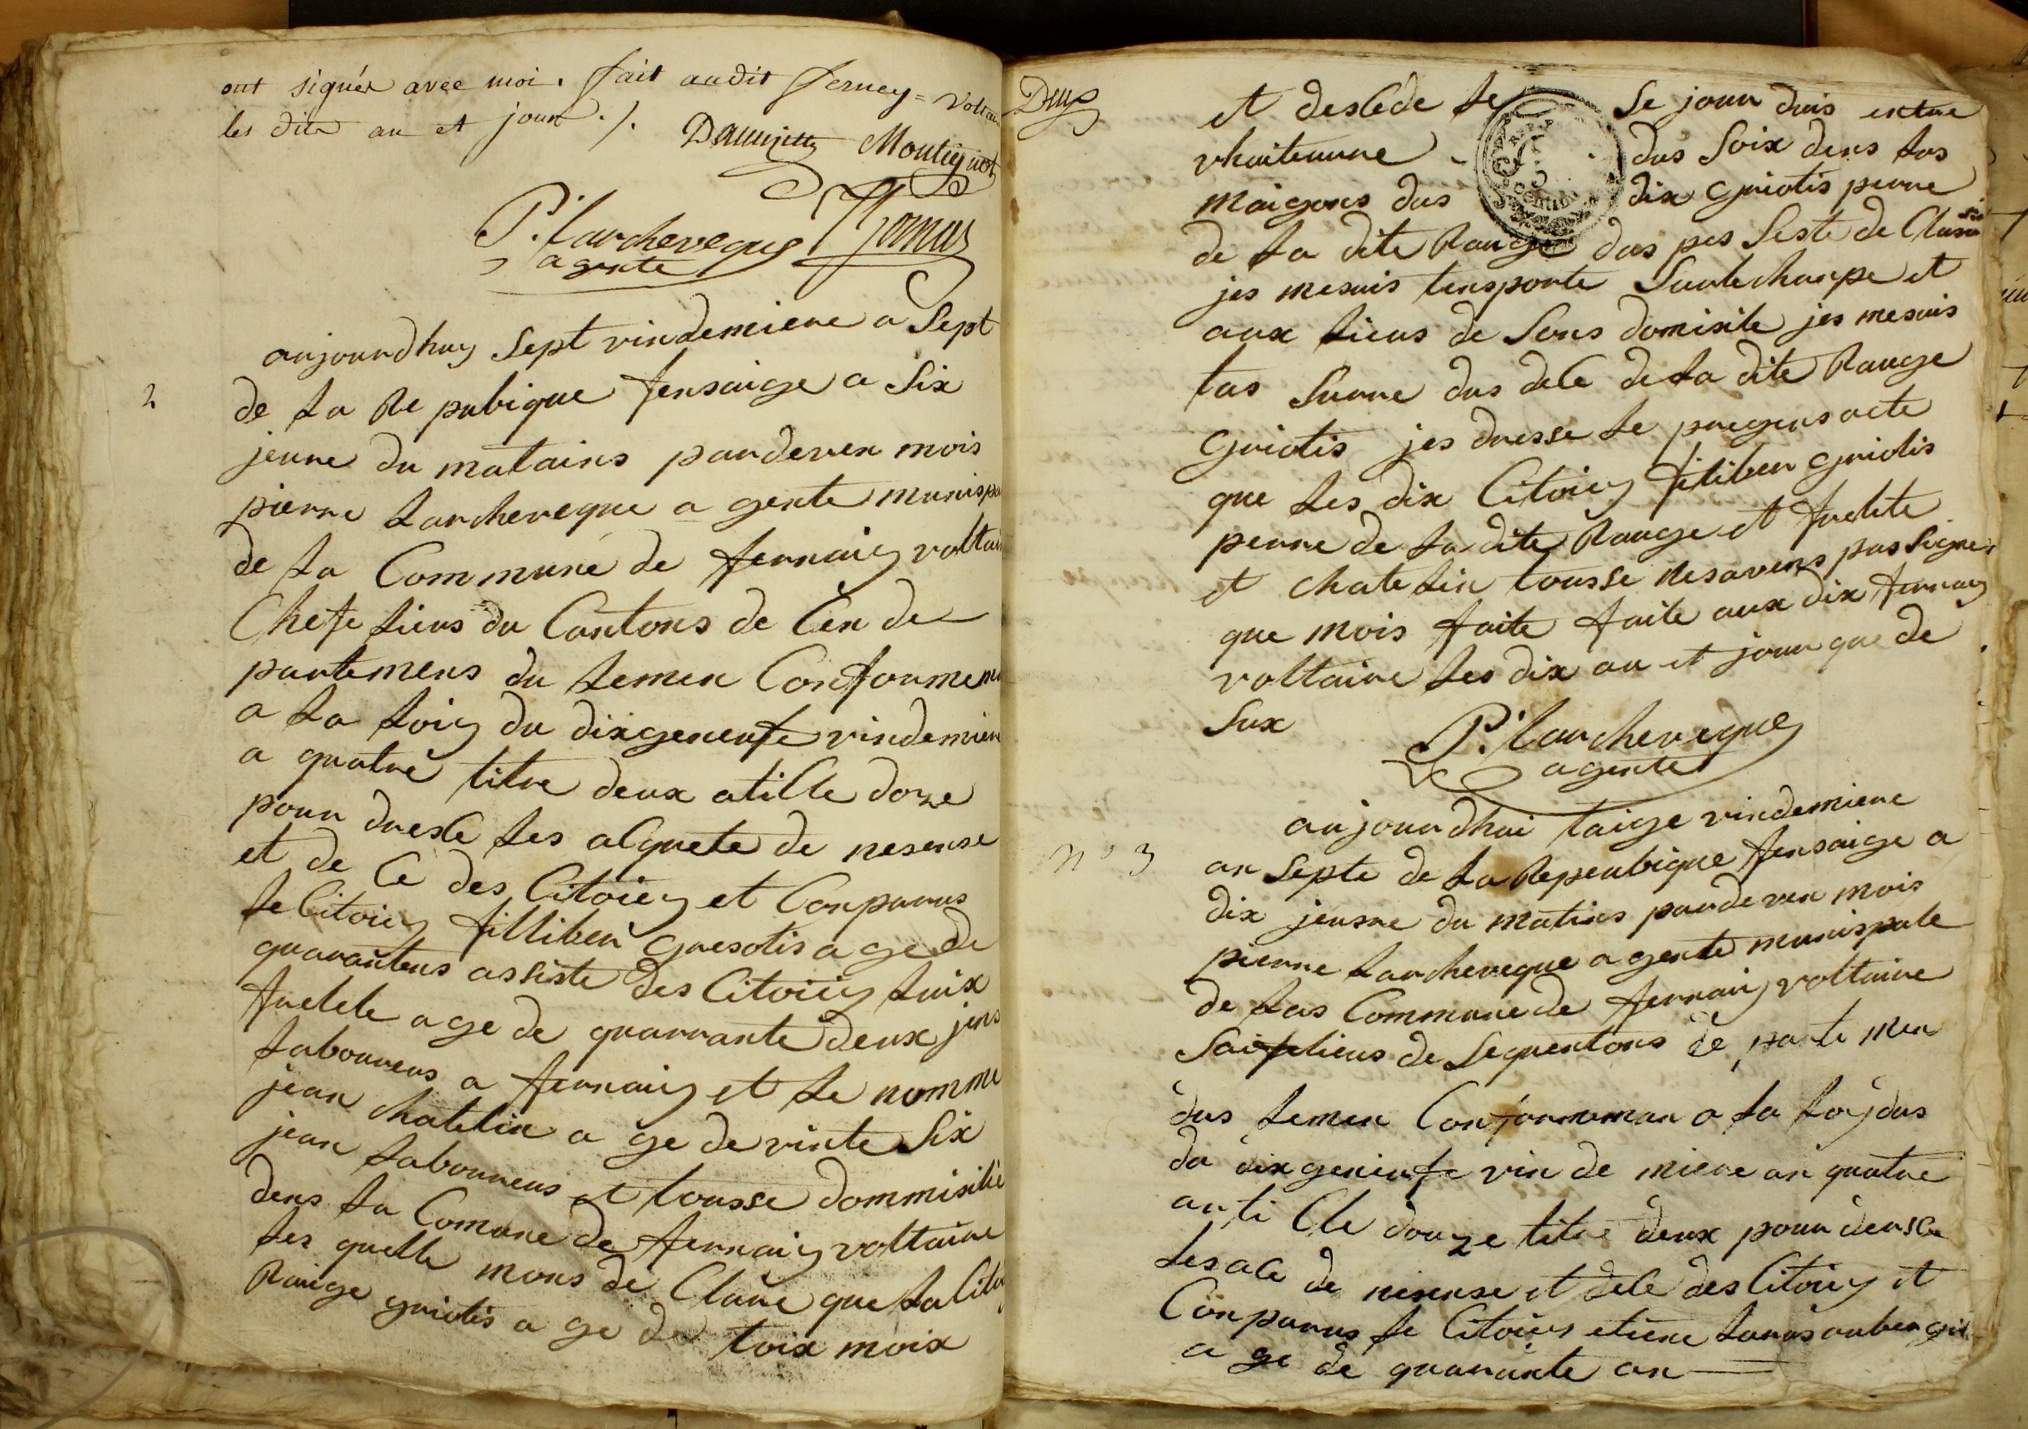 ont signés avec moi. fait audit ferney = Voltai
les dits an et jour ./.
Montignot
P. larcheveque
agente
2
aujourdhuy Sept vindemiere a Sept
de La Re pubique fensaige a Six
jeure du matains pardeven mois
pierre Larcheveque a gente munispa
de La Commune de fernaiy voltai
Chefe Lieus du Cantons de Cen de
partemens du Lemen Conformeme
a La Loiy du dixgeneufe vindemier
a quatre titre deux atille doze
pour dresCe Les alquete de nesense
et de Ce des Citoiey et Conparus
Le Citoiey filliber griotis a ge de
quarantens assiste des Citoiey Luix
fuelete a ge de quarrante deux jens
Laboureus a fernaiy et Le nomme
jean chatelin a ge de vinte Six
jean Laboureus et tousse dommisilie
dens La Comune de fernaiy voltaire
Les quelle mons de Clare que La Cito
Raige griotis a ge de toix moix
Deux
et desCede Le Se jour duis entre
vhuiteure dus Soix dens Las
maigons dus dix griotis perre
de La dite Rauge dos pes Seste de Clara
jes mesuis tensporte Surlechanpe et
aux Lieus de Sons domisile jes mesuis
tas Surre dus deCe de La dite Rauge
griotis jes dresse Le pregens acte
que Les dix Citoiey filiber griotis
perre de La dite Rauge et fuelete
et chatelin tousse nesavens pas Signe
que mois faite faite aux dix fernaiy
voltaire Les dix an et jour que de
Sux
P. larcheveque
agente
n° 3
aujourdhui taige vindemiere
an Septe de La Repeubique fensaige a
dix jeusre du matins pardeven mois
pierre Larcheveque a gente munispale
de Las Commune de fernaiy voltaire
Saifelieus de Sequentons de parte men
dus Lemen Conformeman a La Loijdus
du dixgeneufe vin de miere an quatre
arti Cle douze titre deux pour dersCe
Les aCe de nesense et deCe des Citoiey et
Conparus Le Citoiey etiene
a ge de quarante an